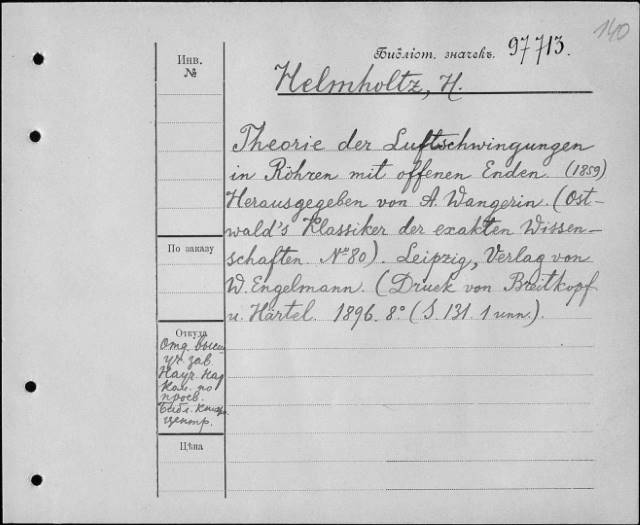 140
Библіот. значекъ. 97713.
Инв.
№
Helmholtz, H.
Theorie der Luftschwingungen
in Röhren mit offenen Enden. (1859)
Herausgegeben von A. Wangerin. (Ost-
wald's Klassiker der exakten Wissen-
schaften. № 80). Leipzig, Verlag von
W. Engelmann. (Druck von Breitkopf
u. Härtel. 1896. 8° (S. 131. 1 unn.).
По заказу
Откуда
Отд. высш
уч. зав.
Науч. над
Ком. по
просв.
Библ.
центр.
Цѣна